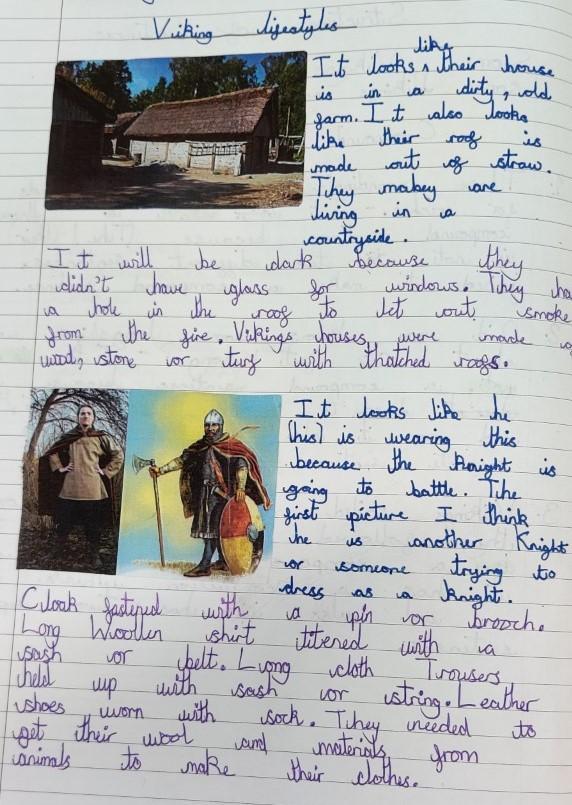 Viking lifestyles
like
It looks ^ their house
is in a dirty, old
farm. It also looks
like their roof is
made out of straw.
They mabey are
living in a
countryside.
It will be dark because they
didn't have glass for windows. They ha
a hole in the roof to let out smoke
from the fire. Vikings houses were made o
wood, stone or turf with thatched roofs.
It looks like he
(his) is wearing this
because the Knight is
going to battle. The
first picture I think
he is another Knight
or someone trying to
dress as a knight.
Cloak fastened with a pin or brooch.
Long Woollen shirt titened with a
sash or belt. Long cloth Trousers
held up with sash or string. Leather
shoes worn with sock. They needed to
get their wool and materials from
animals to make their clothes.